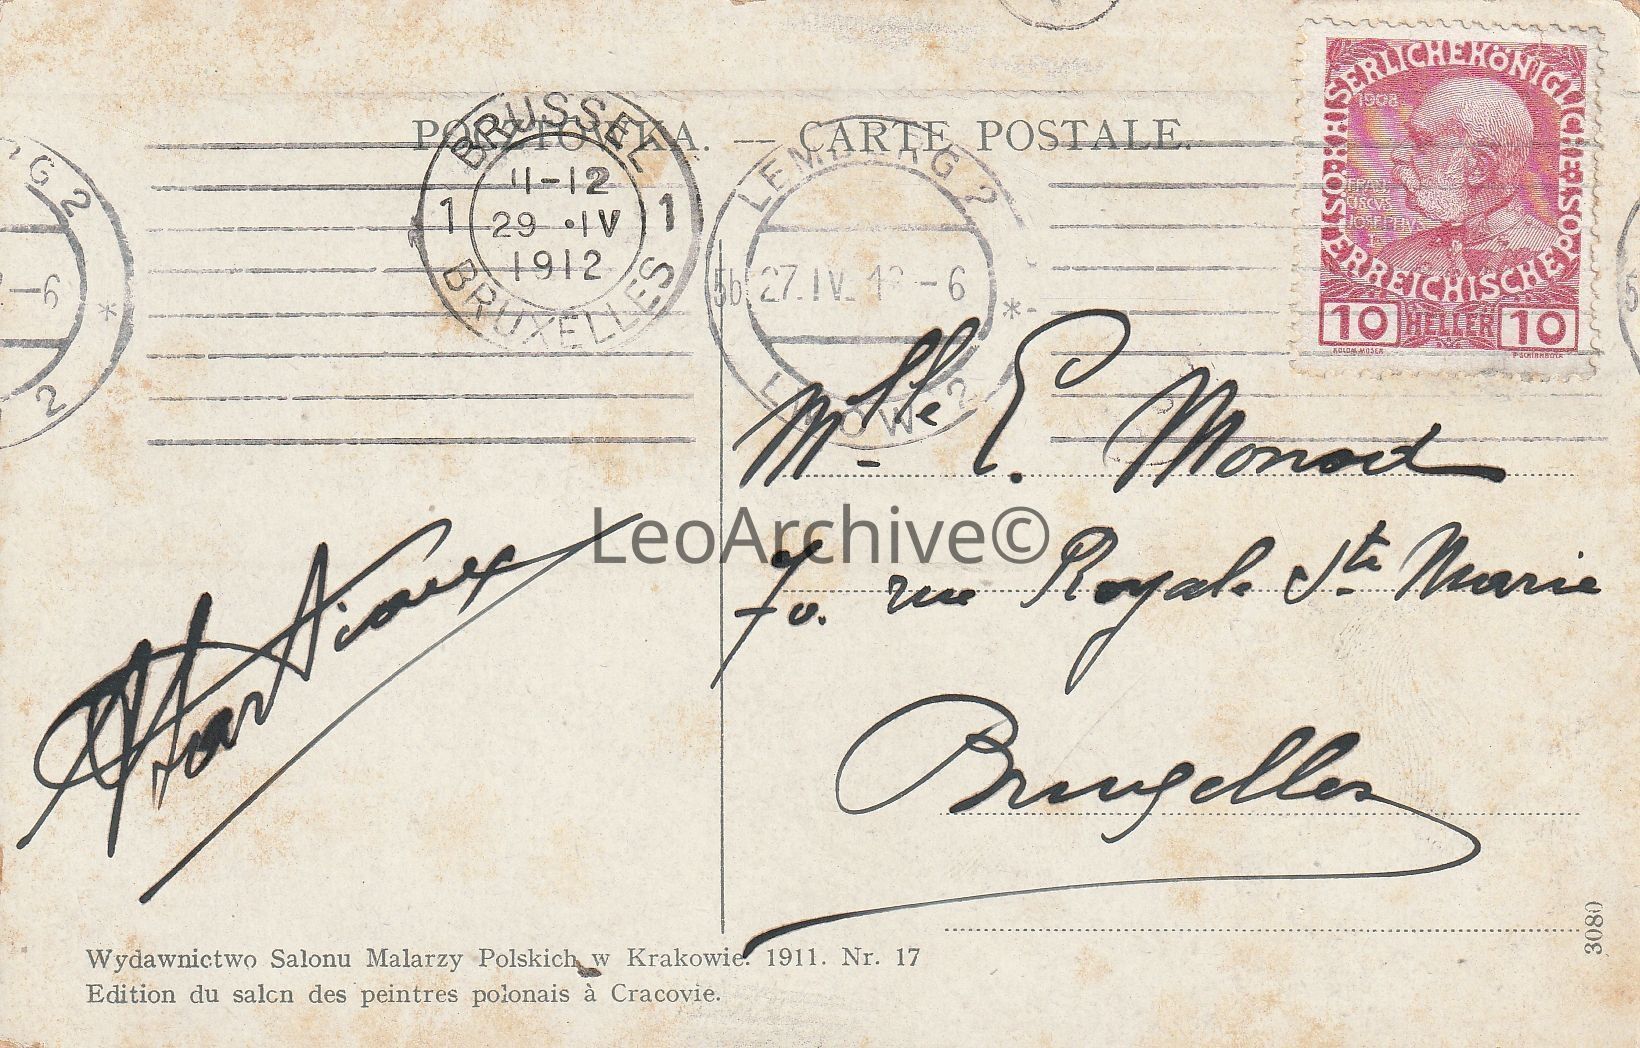 POCZTÓWKA. — CARTE POSTALE.
BRUSSEL
1 11-12 1
29 • IV
1912
BRUXELLES
LEMBERG 2
5b 27.IV. 12 -6 *
LWÓW 2
G 2
-6 *
2
KAISERLICHEKÖNIGLICHE
ÖSTERREICHISCHE POST
1908
10 HELLER 10
KOLOM.MOSER
F.SCHIRNBÖCK
Mlle E. Monod
70. rue Royale Ste Marie
Bruxelles
LeoArchive©
Wydawnictwo Salonu Malarzy Polskich w Krakowie. 1911. Nr. 17
Edition du salon des peintres polonais à Cracovie.
3080